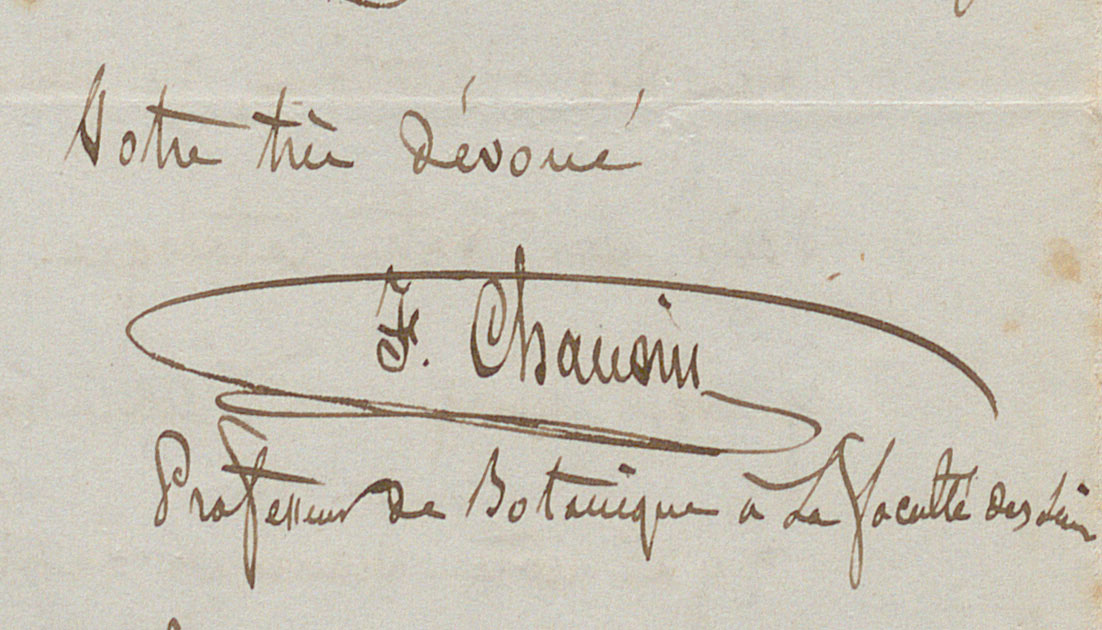 Votre très dévoué
F. Chausin
Professeur de Botanique à la faculté des